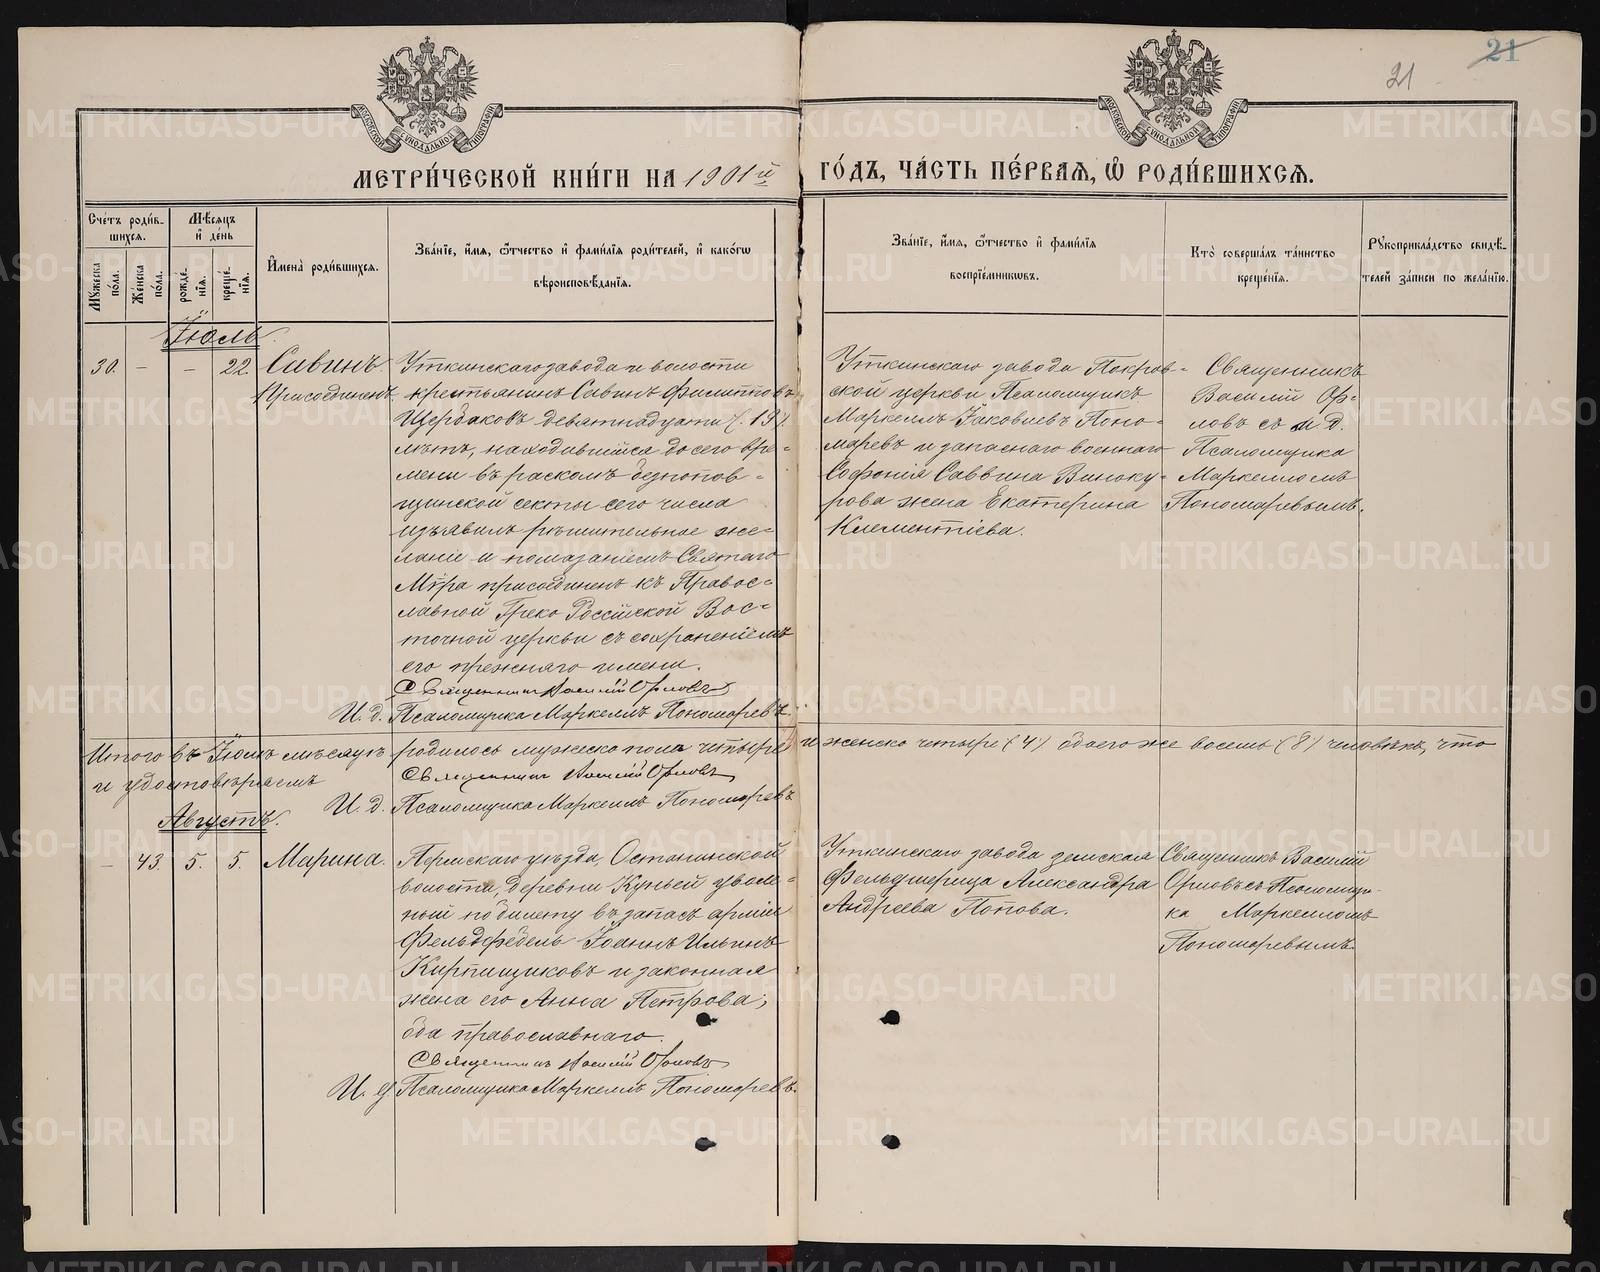 21
21
МЕТРИ́ЧЕСКОЙ КНИ́ГИ НА 1901й ГО́ДЪ, ЧА́СТЬ ПЕ́РВАЯ, Ѽ РОДИ́ВШИХСЯ.
Сче́тъ роди́в-
шихся.
Мꙋ́жеска по́ла.
Же́нска по́ла.
Мѣ́сяцъ и҆ де́нь
рожде́нїя.
креще́нїя.
И҆мена̀ роди́вшихся.
Зва́нїе, и҆́мя, ѻ҆́тчество и҆ фами́лїя роди́телей, и҆ како́гѡ
вѣроисповѣ́данїя.
Зва́нїе, и҆́мя, ѻ҆́тчество и҆ фами́лїя
воспрїе́мникѡвъ.
Кто̀ соверша́лъ та́инство
креще́нїя.
Рꙋкоприкла́дство свидѣ́-
телей за́писи по жела́нїю.
Іюль.
30. — — 22. Савинъ.
Присоединенъ.
Уткинскаго завода и волости
крестьянинъ Савинъ Филипповъ
Щербаковъ девятнадцати (19)
лѣтъ, находившійся до сего вре-
мени въ расколѣ безпопов-
щинской секты сего числа
изъявилъ рѣшительное же-
ланіе и помазаніемъ Святаго
Мѵра присоединенъ къ Правос-
лавной Греко Россійской Вос-
точной церкви съ сохраненіемъ
его прежняго имени.
Священникъ Василій Орловъ
И. д. Псаломщика Маркеллъ Пономаревъ.
Уткинскаго завода Покров-
ской церкви Псаломщикъ
Маркеллъ Іаковлевъ Поно-
маревъ и запаснаго военнаго
Софонія Саввина Виноку-
рова жена Екатерина
Клементіева.
Священникъ
Василій Ор-
ловъ съ и. д.
Псаломщика
Маркелломъ
Пономаревымъ.
Итого въ Іюлѣ мѣсяцѣ родилось мужеска пола четыре и женска четыре (4) обоего же восемь (8) человѣкъ, что
и удостовѣряемъ
Священникъ Василій Орловъ
И. д. Псаломщика Маркеллъ Пономаревъ
Августъ.
— 43. 5. 5. Марина.
Пермскаго уѣзда, Останинской
волости, деревни Куньей уволен-
ный по билету въ запасъ арміи
Фельдфебель Іоаннъ Ильинъ
Кирпищиковъ и законная
жена его Анна Петрова;
оба православнаго.
Священникъ Василій Орловъ
И. д. Псаломщика Маркеллъ Пономаревъ.
Уткинскаго завода земская
Фельдшерица Александра
Андреева Попова.
Священникъ Василій
Орловъ съ Псаломщи-
ка Маркелломъ
Пономаревымъ
METRIKI.GASO-URAL.RU